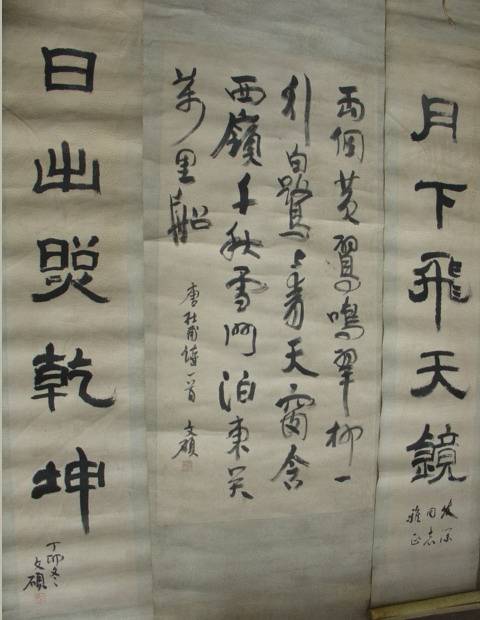 月下飛天鏡
同志
雅正
兩個黄鸝鳴翠柳一
行白鷺上青天窗含
西嶺千秋雪門泊東吴
萬里船
唐杜甫詩一首
文碩
日出照乾坤
丁卯冬
文碩